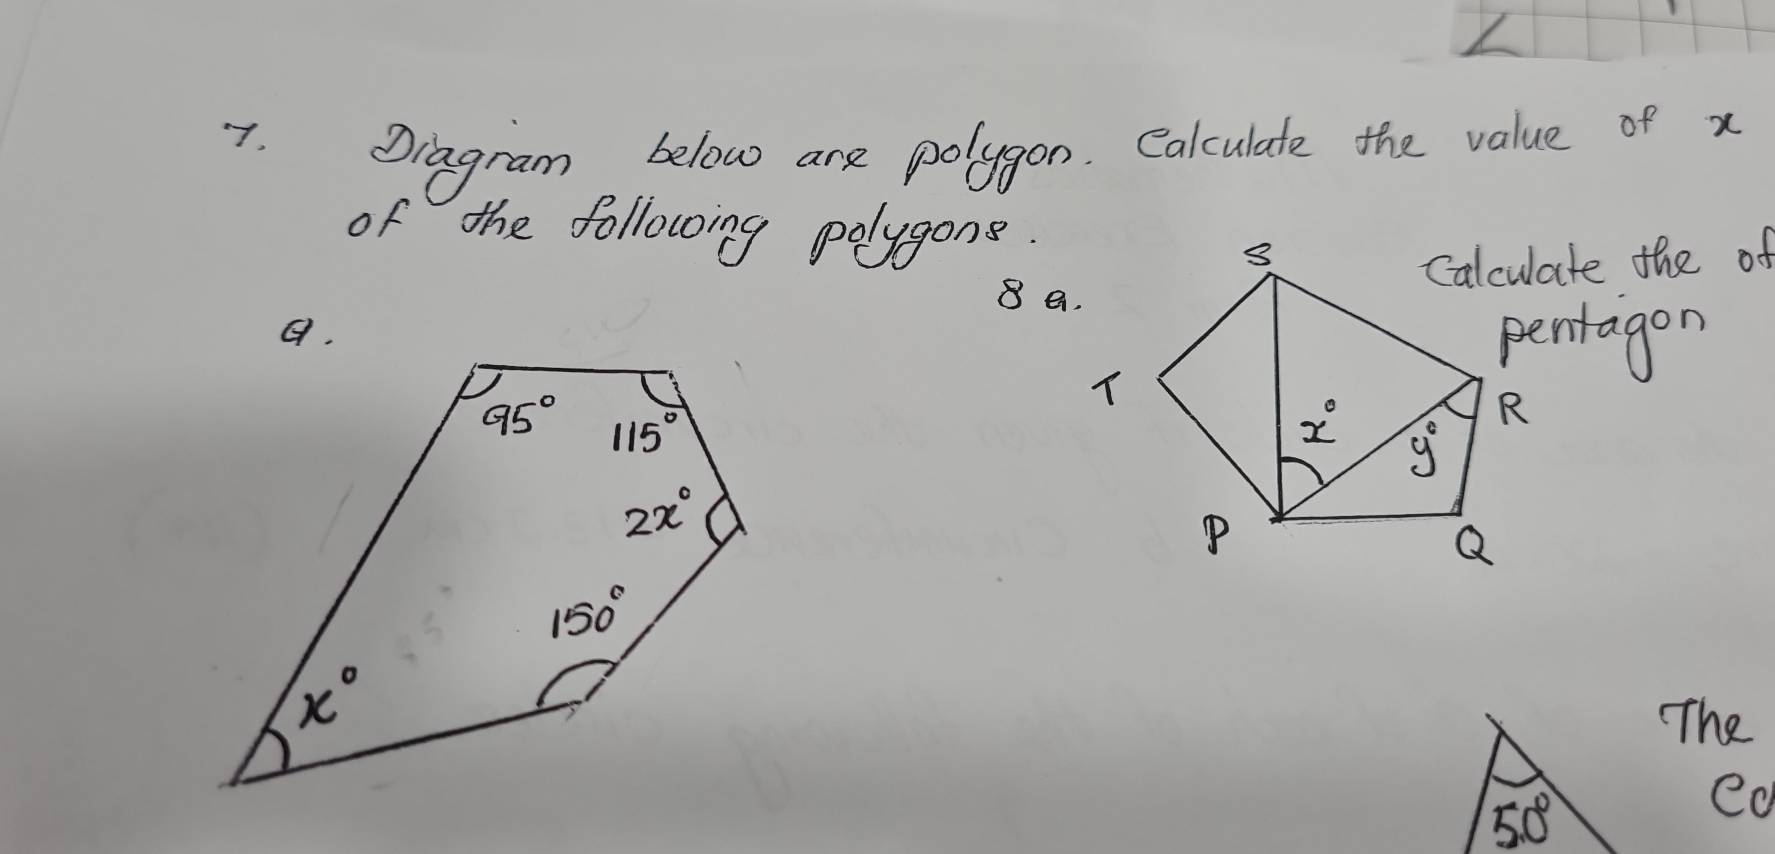 7. Diagram below are polygon. Calculate the value of x
of the following polygons.
a.
95°
115°
2x°
150°
x°
8 a.
S
T
x°
y°
R
P
Q
Calculate the of
pentagon
50°
The